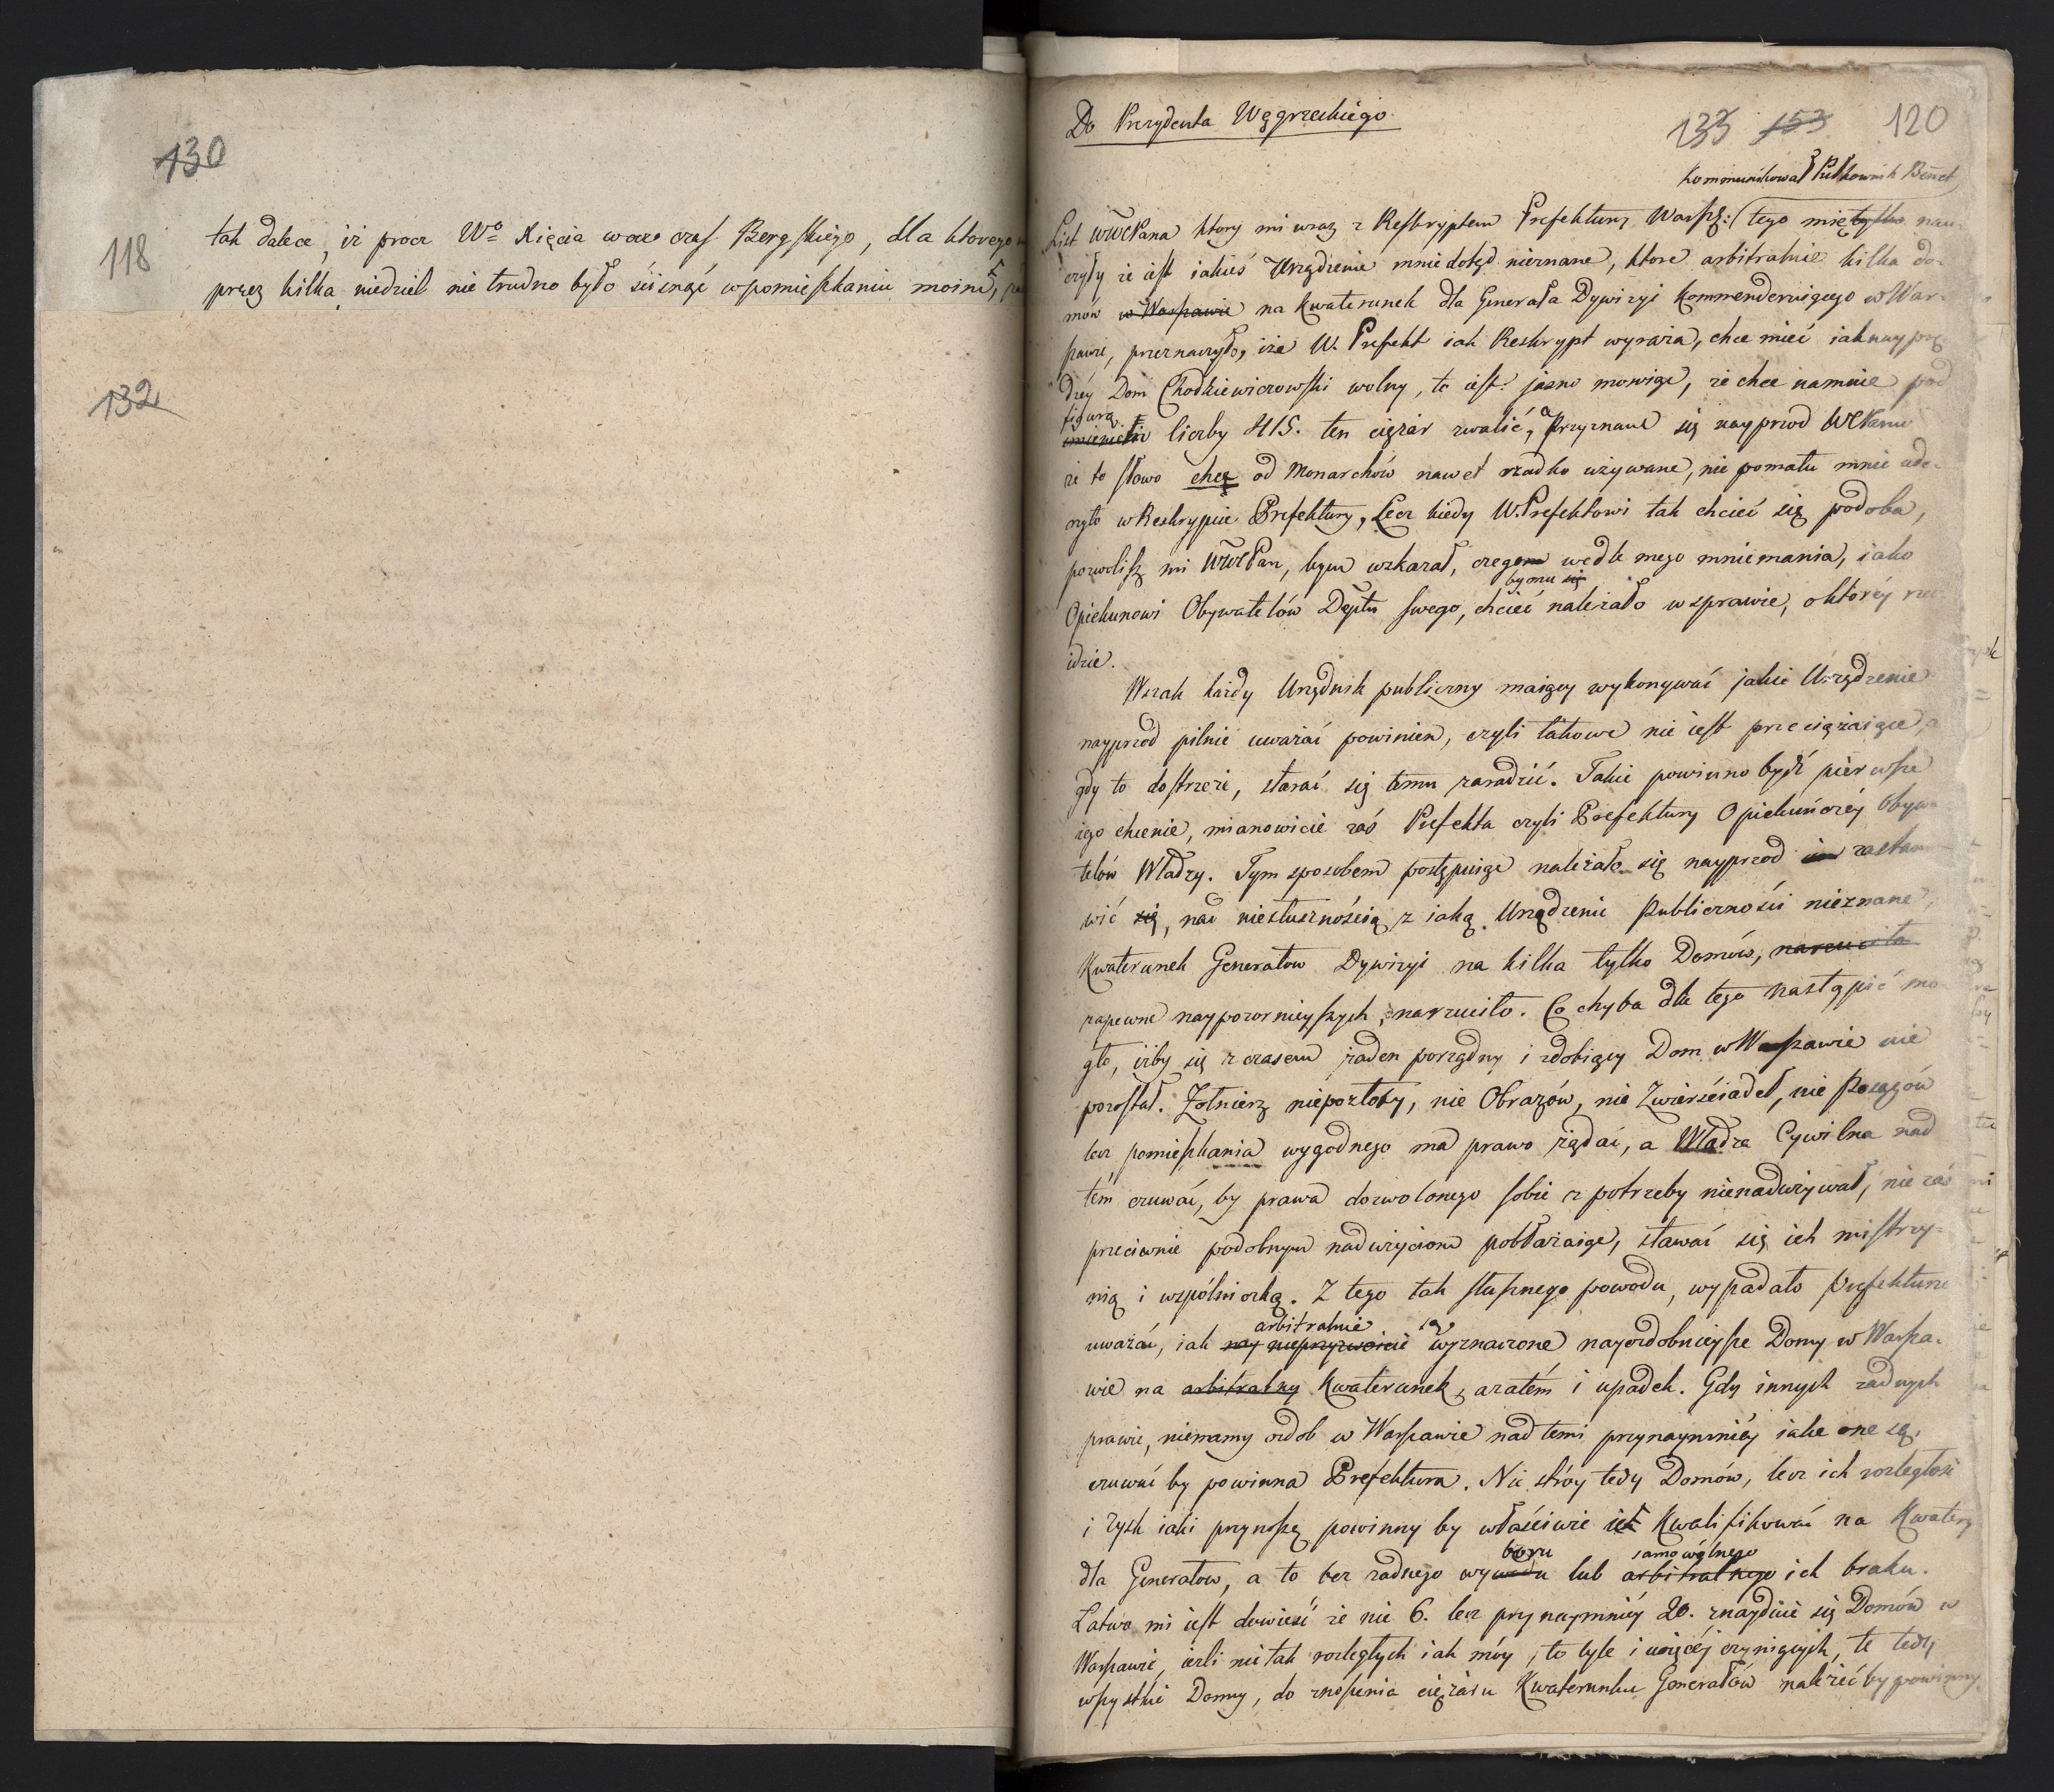 130
118
tak dalece, iż procz Wo Xięcia w ow czas Bergskiego, dla ktorego
przez kilka niedziel nie trudno było ścisnąć w pomieszkaniu moim,
132
Do Prezydenta Węgrzeckiego
133 153 120
Kommunikował Pułkownik Bennet
List WWćPana ktory mi wraz z Reskryptem Prefektury Warsz: tego mię tylko nau-
czyły że iest iakieś Urządzenie mnie dotąd nieznane, ktore arbitralnie kilka do-
mów w Warszawie na Kwaterunek dla Generała Dywizyi Kommenderuiącego w War-
szawie, przeznaczyło, iże W. Prefekt iak Reskrypt wyraża, chce mieć iak nayprę-
dzey Dom Chodkiewiczowski wolny, to iest: jasno mowiąc, że chce na mnie pod
figurą
imieniem liczby 415. ten ciężar zwalić, a Przyznam się nayprzod WćPanu
że to słowo chcę od Monarchów nawet rzadko używane, nie pomału mnie ude-
rzyło w Reskrypcie Prefektury, Lecz kiedy W. Prefektowi tak chcieć się podoba,
pozwolisz mi WWćPan, bym wskazał, czegom wedle mego mniemania, iako
by mu się
Opiekunowi Obywatelów Deptu swego, chcieć należało w sprawie, o ktorey rze
idzie.
Wszak każdy Urzędnik publiczny maiący wykonywać jakie Urządzenie
nayprzod pilnie uważać powinien, czyli takowe nie iest przeciążaiące,
gdy to dostrzeże, starać się temu zaradzić. Takie powinno bydź pierwsze
iego chcenie, mianowicie zaś Prefekta czyli Prefektury Opiekuńczéy Obywa-
telów Władzy. Tym sposobem postępuiąc należało się nayprzod im zastano-
wić się, nad niesłusznością z iaką Urządzenie Publiczności nieznane,
Kwaterunek Generałow Dywizyi na kilka tylko Domów, narzuciło
zapewne naypozornieyszych, narzuciło. Co chyba dla tego nastąpić mo-
gło, iżby się z czasem żaden porządny i zdobiący Dom w Warszawie nie
pozostał. Żołnierz niepozłoty, nie Obrazów, nie Zwierściadeł, nie Posągów
lecz pomieszkania wygodnego ma prawo żądać, a Władza Cywilna nad
tém czuwać, by prawa dozwolonego sobie z potrzeby nienadużywał, nie zaś
przeciwnie podobnym nadużyciom pobłażaiąc, stawać się ich mistrzy-
nią i wspólniczką. Z tego tak słusznego powodu, wypadało Prefekturze
arbitralnie są
uważać, iak nay nieprzyzwoicie wyznaczone nayozdobnieysze Domy w Warsza-
wie na arbitralny Kwaterunek, a zatém i upadek. Gdy innych żadnych
prawie, niemamy ozdob w Warszawie nad temi przynaymniéy iakie one są,
czuwać by powinna Prefektura. Nie stróy tedy Domów, lecz ich rozległość
i zysk iaki przynoszą powinny by właściwie ich Kwalifikować na Kwatery
boru samowolnego
dla Generałow, a to bez żadnego wywodu lub arbitralnego ich braku.
Łatwo mi iest dowieść że nie 6. lecz przynaymniéy 20. znaydzie się Domów w
Warszawie, ieśli nie tak rozległych iak móy, to tyle i więcéj czyniących, te tedy
wszystkie Domy, do znoszenia ciężaru Kwaterunku Generałów należeć by powinny.